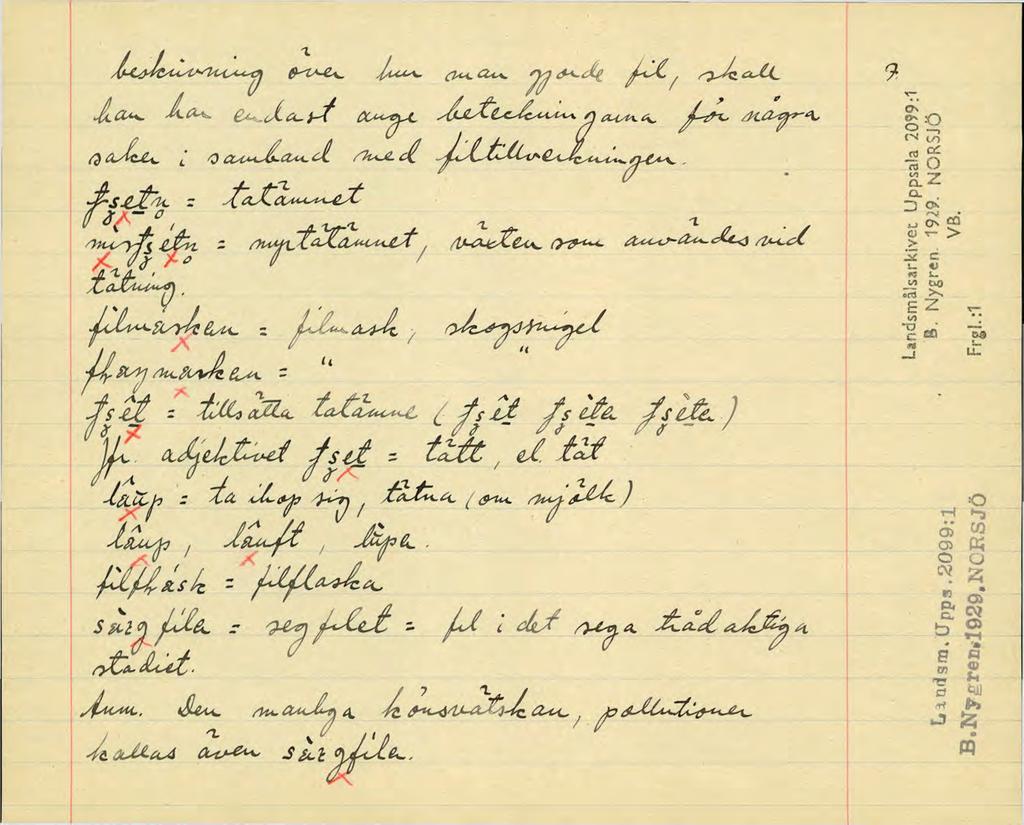 beskrivning över hur man gjorde fil, skall
han har endast ange beteckningarna för några
saker i samband med filtillverkningen.
= tatämnet
= myrtätämnet, växten som användes vid
tätning.
filmasken = filmask, skogssnigel
= "        "
= tillsätta tatämne (
Jfr. adjektivet = tätt, el. tät
läup = ta ihop sig, tätna (om mjölk)
läup, läuft, lupe.
= filflaska
= segfilet = fil i det sega trådaktiga
stadiet.
Anm. Den manliga könsvätskan, pollutioner
kallas även
7.
Landsmålsarkivet Uppsala 2099:1
B. Nygren. 1929. NORSJÖ
VB.
Frgl.:1
Landsm.Upps.2099:1
B.Nygren,1929,NORSJÖ